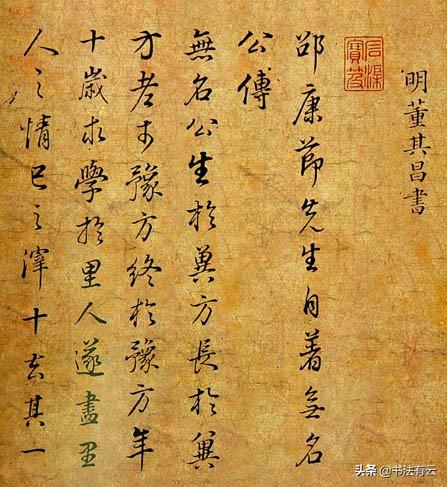 明董其昌書
石渠
寶笈
邵康節先生自著无名
公傳
無名公生於冀方長於冀
方老於豫方終於豫方年
十歲求學於里人遂盡里
人之情己之滓十去其一
头条 @书法有云